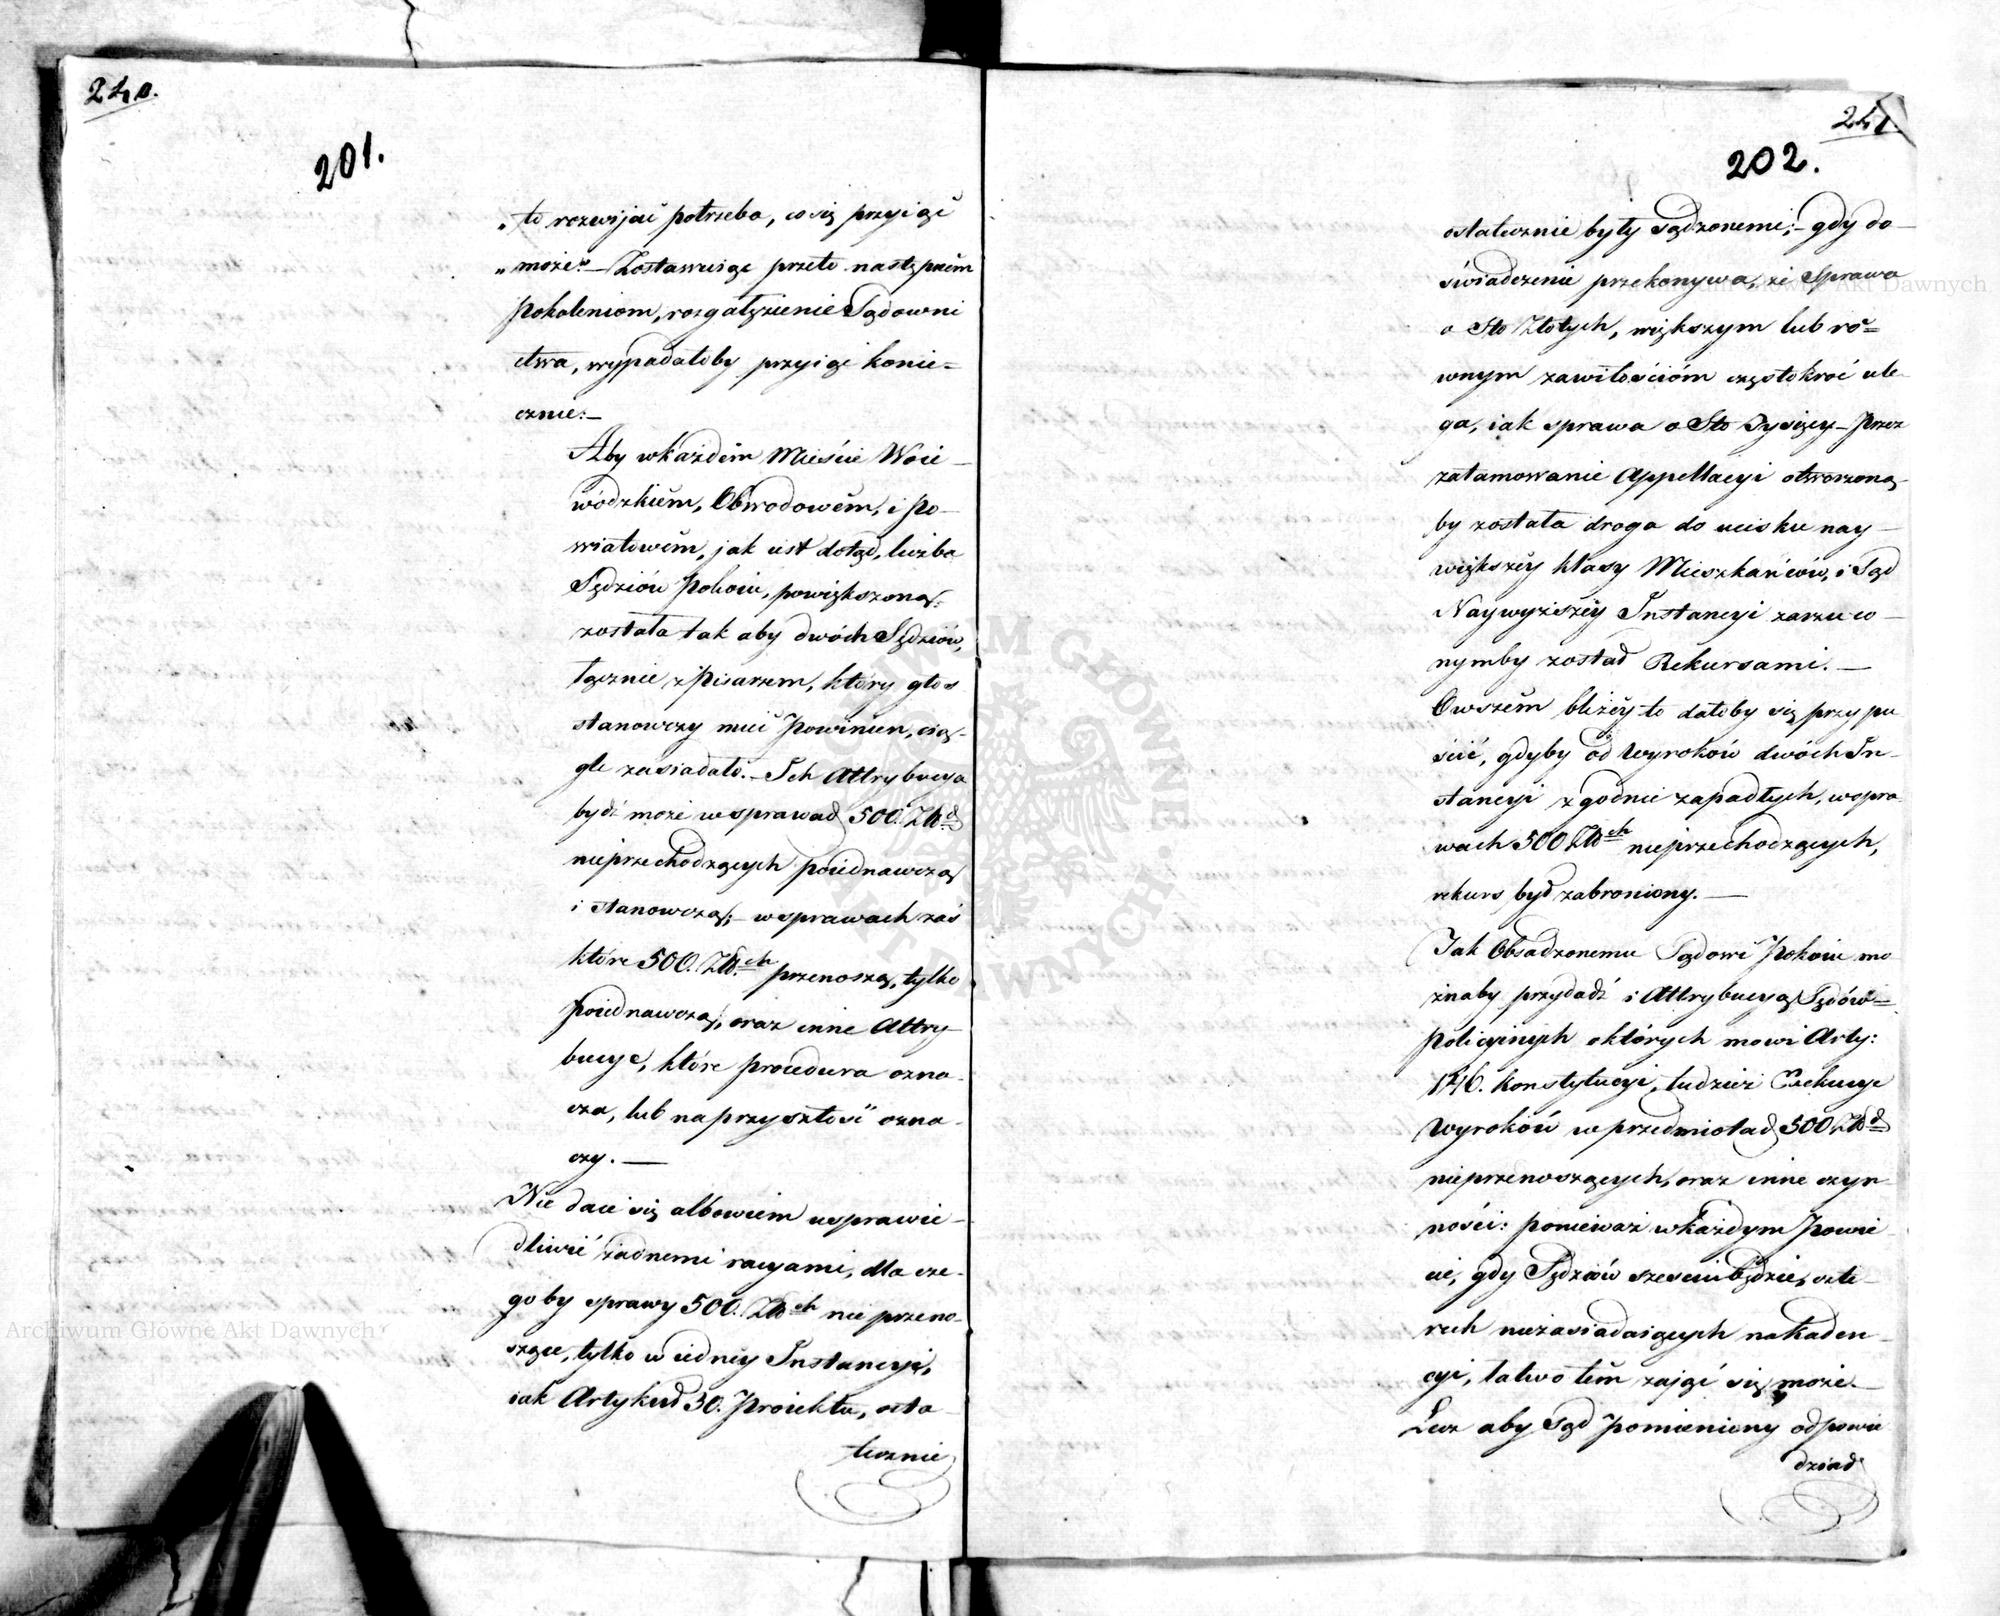 240.
201.
„to rozwijać potrzeba, co się przyiąć
„może." — Zostawuiąc przeto następnem
pokoleniom, rozgałęzienie Sądowni
ctwa, wypadałoby przyiąć konie=
cznie: —
Aby w każdém Mieście Woie —
wódzkiém, Obwodowém, i po—
wiatowém, jak iest dotąd, liczba
Sędziów Pokoiu, powiększoną
została tak aby dwóch Sędziów,
łącznie z Pisarzem, który głos
stanowczy mieć powinien, cią-
gle zasiadało. — Ich Attrybucya
bydź może w sprawach 500. Złch
nieprzechodzących poiednawczą
i stanowczą; — w sprawach zaś
które 500. Złch przenoszą, tylko
poiednawczą, oraz inne Attry
bucye, które procedura ozna-
cza, lub na przyszłość ozna-
czy. —
Nie daie się albowiem usprawie —
dliwić żadnemi racyami, dla cze-
goby sprawy 500. Złch nie przeno-
szące, tylko w iedney Instancyi,
iak Artykuł 30. Proiektu, osta —
tecznie
241.
202.
ostatecznie były sądzonemi; — gdy do —
świadczenie przekonywa, że Sprawa
o Sto Złotych, większym lub ró=
wnym zawiłościóm częstokroć ule-
ga, iak sprawa o Sto Tysięcy — Przez
zatamowanie Appellacyi otworzoną
by została droga do ucisku nay —
większéy klasy Mieszkańców, i Sąd
Naywyższéy Instancyi zarzuco —
nymby został Rekursami. —
Owszem bliżéy to dałoby się przypu
ścić, gdyby od Wyroków dwóch In-
stancyi zgodnie zapadłych, w spra-
wach 500 Złch nieprzechodzących,
rekurs był zabroniony. —
Tak Obsadzonemu Sądowi Pokoiu mo
żnaby przydadź i Attrybucyą Sądów=
Policyinych o których mowi Arty:
146. Konstytucyi, tudzież Exekucye
Wyroków w przedmiotach 500 Złch
nieprzenoszących, oraz inne czyn
ności: ponieważ w każdym Powie —
cie, gdy Sędziów sześciu będzie, czte —
rech niezasiadaiących na Kaden —
cyi, łatwo tém zająć się może. —
Lecz aby Sąd pomieniony odpowie
dział
Archiwum Główne Akt Dawnych
Archiwum Główne Akt Dawnych
ARCHIWUM GŁÓWNE AKT DAWNYCH.